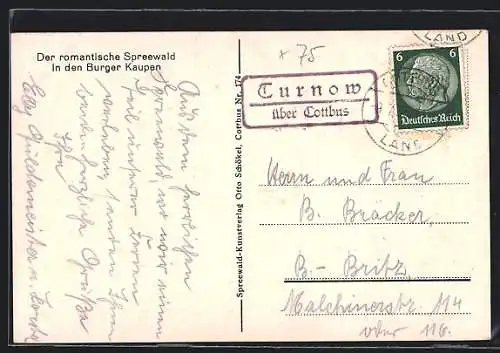 Der romantische Spreewald
In den Burger Kaupen
Aus dem herrlichen
Spreewald, wo wir einen
Teil unserer Ferien
verleben, senden Ihnen
beiden herzliche Grüße
Ihre
Spreewald-Kunstverlag Otto Schökel, Cottbus Nr. 174
* 75
Turnow
über Cottbus
LAND
6 6
Deutsches Reich
LAND
Herrn und Frau
B. Bräcker,
B.-Britz,
Malchinerstr. 114
oder 116.